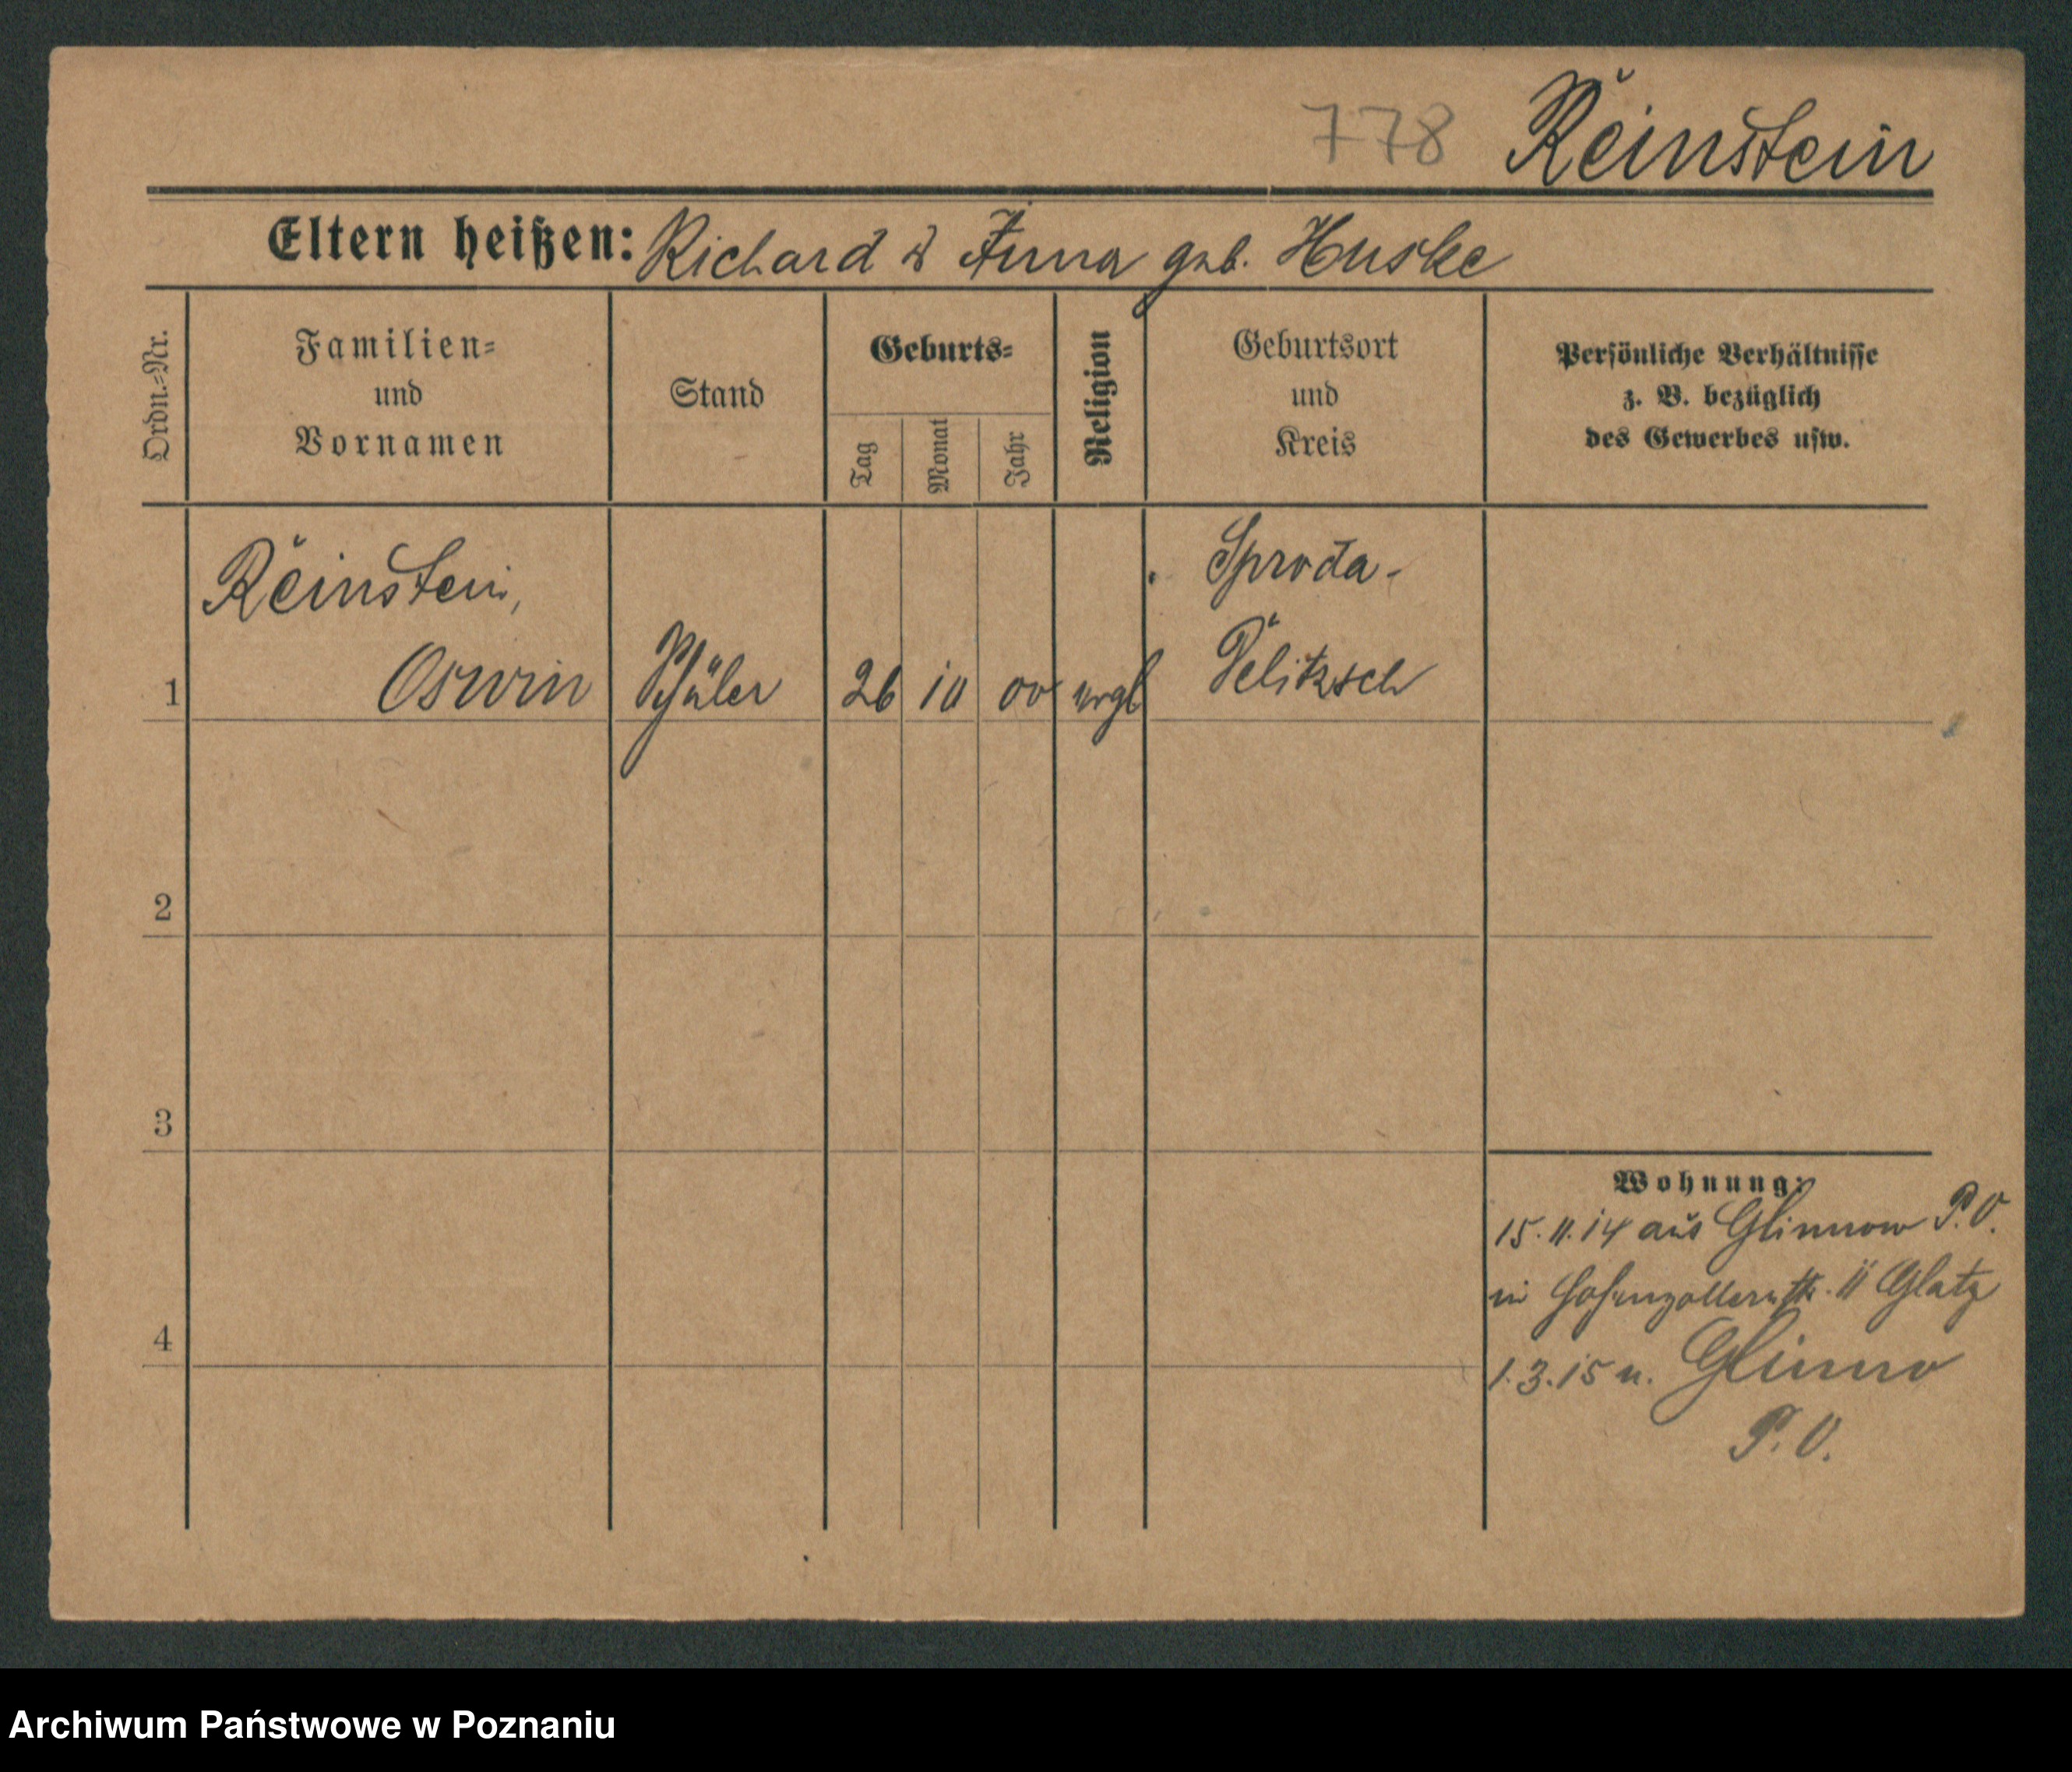 778 Reinstein
Eltern heißen: Richard & Anna geb. Huske
Ordn.-Nr.
Familien-
und
Vornamen
Stand
Geburts-
Tag
Monat
Jahr
Religion
Geburtsort
und
Kreis
Persönliche Verhältnisse
z. B. bezüglich
des Gewerbes usw.
Reinstein,
Sproda-
1 Oswin Schüler 26 10 00 evgl Delitzsch
2
3
Wohnung:
15.11.14 aus Glinnow P.O.
in Hohenzollernstr. 11 Glatz
4
1.3.15 n. Glinno
P.O.
Archiwum Państwowe w Poznaniu